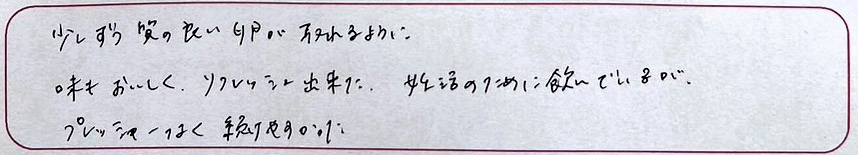 少しずつ質の良い卵が取れるように
味もおいしく、リフレッシュ出来た。妊活のために飲んでいるが、
プレッシャーなく続けやすかった